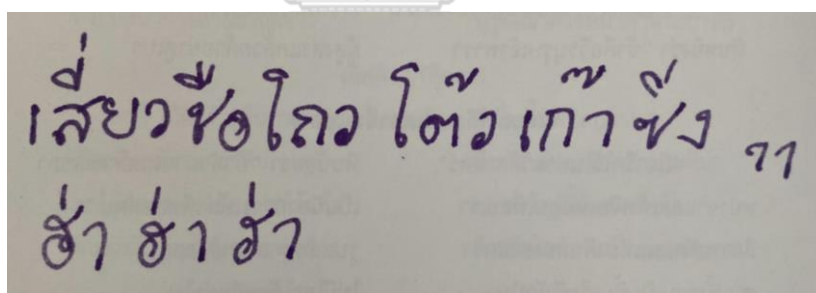 เสี่ยวชือโถว โต๊ว เก๊า ซึ่ง ,,
ฮ่า ฮ่า ฮ่า